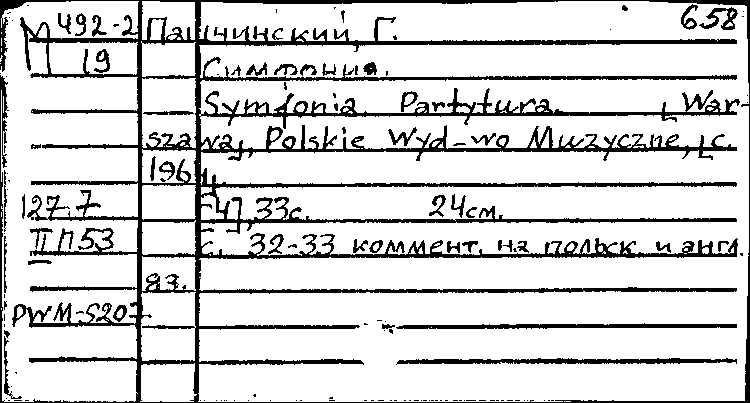 М 492-2 Пащинский, Г. 658
19 Симфония.
Symfonia. Partytura. [War-
szawa], Polskie Wyd-wo Muzyczne, [c.
196
127.7 [4], 33 с. 24 см.
II П53 с. 32-33 коммент. на польск. и англ.
яз.
PWM-5207